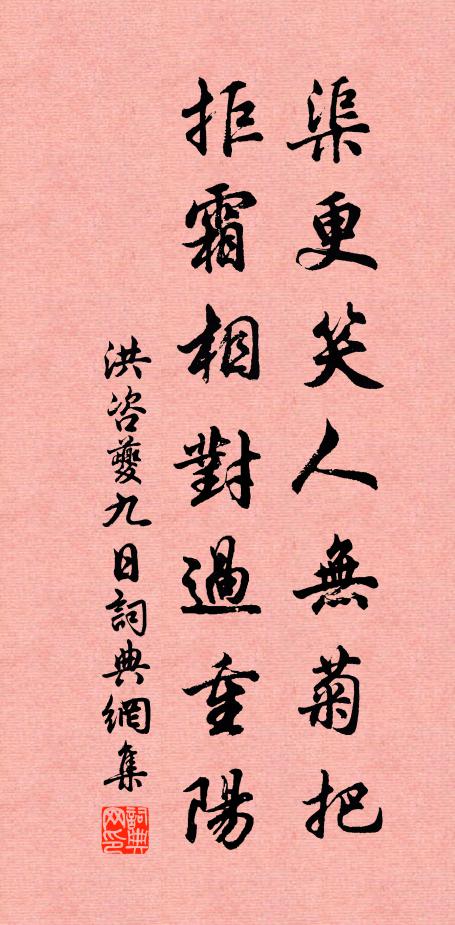 渠更笑人無菊把
拒霜相對過重陽
洪咨夔九日詞典網集
詞典网印